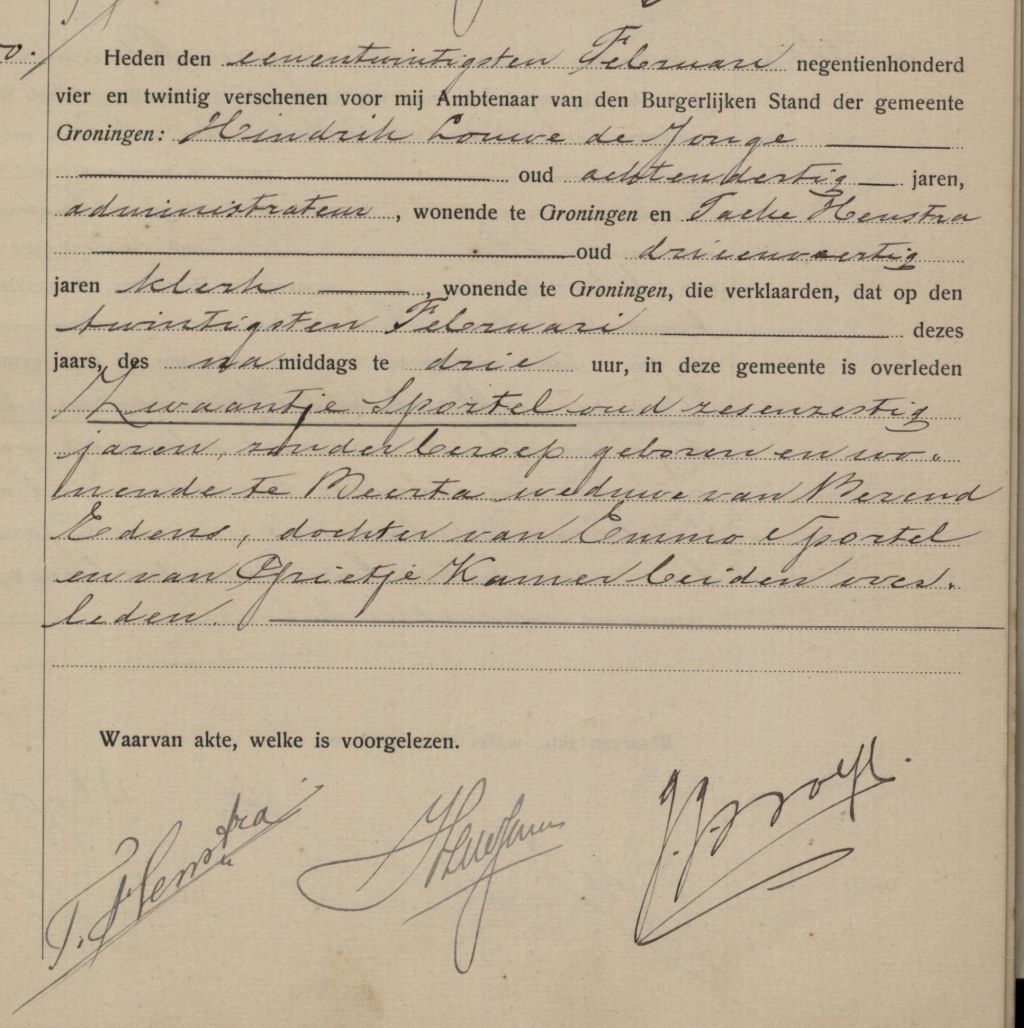 Heden den eenentwintigsten Februari negentienhonderd
vier en twintig verschenen voor mij Ambtenaar van den Burgerlijken Stand der gemeente
Groningen: Hindrik Louwe de Jonge
oud achtendertig jaren,
administrateur, wonende te Groningen en Taeke Heustra
oud drieenveertig
jaren klerk, wonende te Groningen, die verklaarden, dat op den
twintigsten Februari dezes
jaars, des namiddags te drie uur, in deze gemeente is overleden
Zwaantje Sportel oud zesenzestig
jaren, zonder beroep geboren en wo„
nende te Beerta weduwe van Berend
Edens, dochter van Emmo Sportel
en van Grietje Kamer beiden over„
leden.
Waarvan akte, welke is voorgelezen.